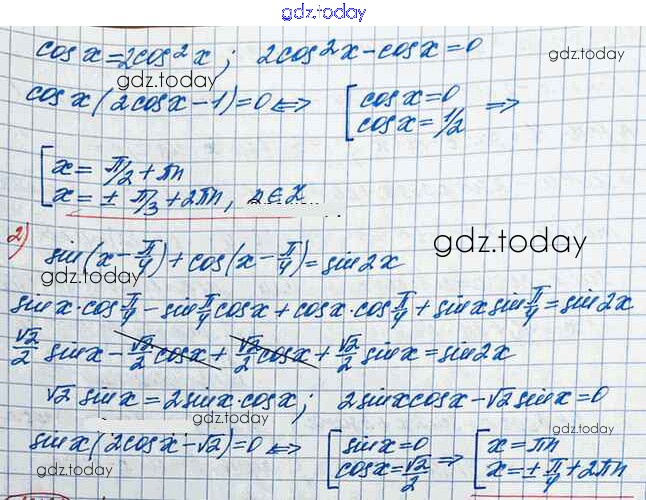 gdz.today
cos x = 2cos²x ; 2cos²x - cos x = 0
gdz.today
gdz.today
cos x (2cos x - 1) = 0 ⟺ [ cos x = 0 ⟹
cos x = 1/2
[ x = π/2 + πn
x = ± π/3 + 2πn, n ∈ Z
gdz.today
2)
sin(x - π/4) + cos(x - π/4) = sin 2x
gdz.today
gdz.today
sin x · cos π/4 - sin π/4 cos x + cos x · cos π/4 + sin x sin π/4 = sin 2x
√2/2 sin x - √2/2 cos x + √2/2 cos x + √2/2 sin x = sin 2x
√2 sin x = 2 sin x · cos x ; 2 sin x cos x - √2 sin x = 0
gdz.today
gdz.today
sin x (2cos x - √2) = 0 ⟺ [ sin x = 0 ⟹ [ x = πn
cos x = √2/2 x = ± π/4 + 2πn
gdz.today
gdz.today